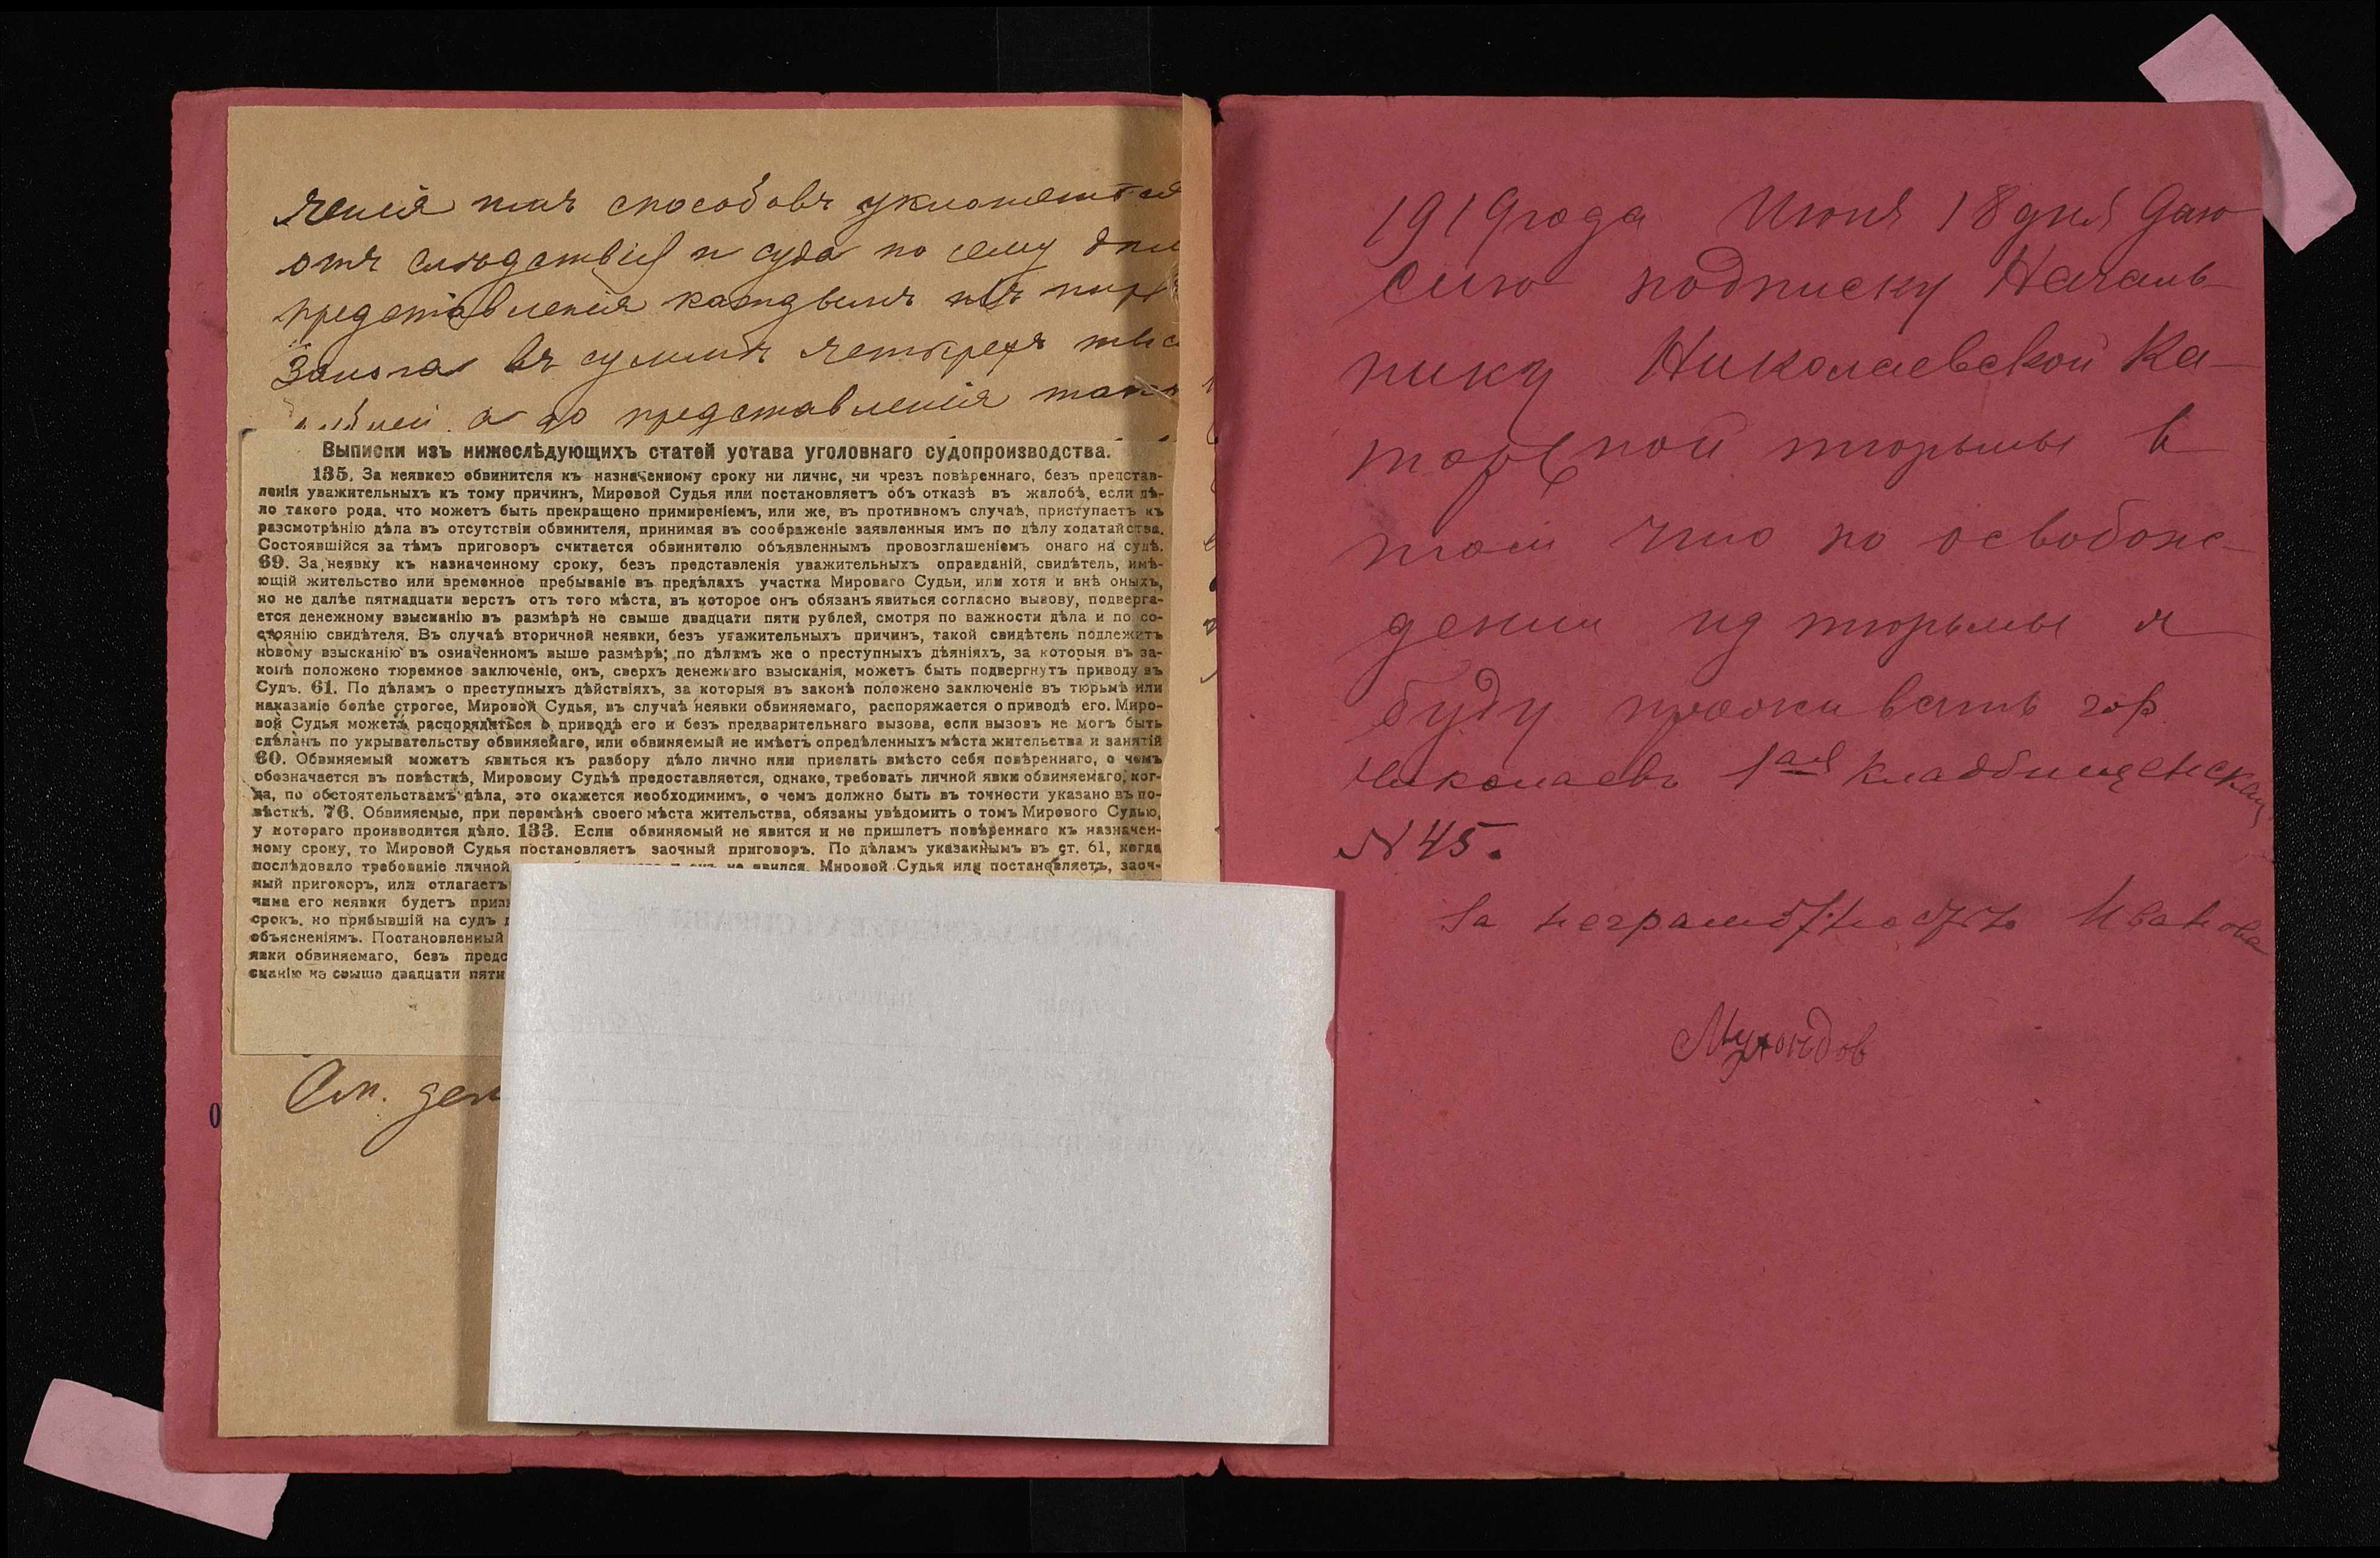 ченія имъ способовъ уклоняться
отъ слѣдствія и суда по сему дѣл
представленія каждымъ изъ нихъ
Залога въ суммѣ четырехъ тыс
а до представленія
Выписки изъ нижеслѣдующихъ статей устава уголовнаго судопроизводства.
135. За неявкою обвинителя къ назначенному сроку ни лично, ни чрезъ повѣреннаго, безъ представ-
ленія уважительныхъ къ тому причинъ, Мировой Судья или постановляетъ объ отказѣ въ жалобѣ, если дѣ-
ло такого рода, что можетъ быть прекращено примиреніемъ, или же, въ противномъ случаѣ, приступаетъ къ
разсмотрѣнію дѣла въ отсутствіи обвинителя, принимая въ соображеніе заявленныя имъ по дѣлу ходатайства.
Состоявшійся за тѣмъ приговоръ считается обвинителю объявленнымъ провозглашеніемъ онаго на судѣ.
69. За неявку къ назначенному сроку, безъ представленія уважительныхъ оправданій, свидѣтель, имѣ-
ющій жительство или временное пребываніе въ предѣлахъ участка Мироваго Судьи, или хотя и внѣ оныхъ,
но не далѣе пятнадцати верстъ отъ того мѣста, въ которое онъ обязанъ явиться согласно вызову, подверга-
ется денежному взысканію въ размѣрѣ не свыше двадцати пяти рублей, смотря по важности дѣла и по со-
стоянію свидѣтеля. Въ случаѣ вторичной неявки, безъ уважительныхъ причинъ, такой свидѣтель подлежитъ
новому взысканію въ означенномъ выше размѣрѣ; по дѣламъ же о преступныхъ дѣяніяхъ, за которыя въ за-
конѣ положено тюремное заключеніе, онъ, сверхъ денежнаго взысканія, можетъ быть подвергнутъ приводу въ
Судъ. 61. По дѣламъ о преступныхъ дѣйствіяхъ, за которыя въ законѣ положено заключеніе въ тюрьмѣ или
наказаніе болѣе строгое, Мировой Судья, въ случаѣ неявки обвиняемаго, распоряжается о приводѣ его. Миро-
вой Судья можетъ распорядиться о приводѣ его и безъ предварительнаго вызова, если вызовъ не могъ быть
сдѣланъ по укрывательству обвиняемаго, или обвиняемый не имѣетъ опредѣленныхъ мѣста жительства и занятій
60. Обвиняемый можетъ явиться къ разбору дѣло лично или прислать вмѣсто себя повѣреннаго, о чемъ
обозначается въ повѣсткѣ, Мировому Судьѣ предоставляется, однако, требовать личной явки обвиняемаго, ког-
да, по обстоятельствамъ дѣла, это окажется необходимимъ, о чемъ должно быть въ точности указано въ по-
вѣсткѣ. 76. Обвиняемые, при перемѣнѣ своего мѣста жительства, обязаны увѣдомить о томъ Мирового Судью,
у котораго производится дѣло. 133. Если обвиняемый не явится и не пришлетъ повѣреннаго къ назначен-
ному сроку, то Мировой Судья постановляетъ заочный приговоръ. По дѣламъ указаннымъ въ ст. 61, когда
послѣдовало требованіе личной не явился, Мировой Судья или постановляетъ, заоч-
ный приговоръ, или отлагаетъ
чина его неявки будетъ призн
срокъ, но прибывшій на судъ
объясненіямъ. Постановленный
явки обвиняемаго, безъ предс
сканію не свыше двадцати пяти
1919 года Июня 18 дня Даю
сию подписку Началь-
нику Николаевской Ка-
торжной тюрьмы в
том что по освобож-
дении из тюрьмы я
буду проживать гор
Николаевъ 1ая Кладбищенская
N 45.
За неграмотность Иванова